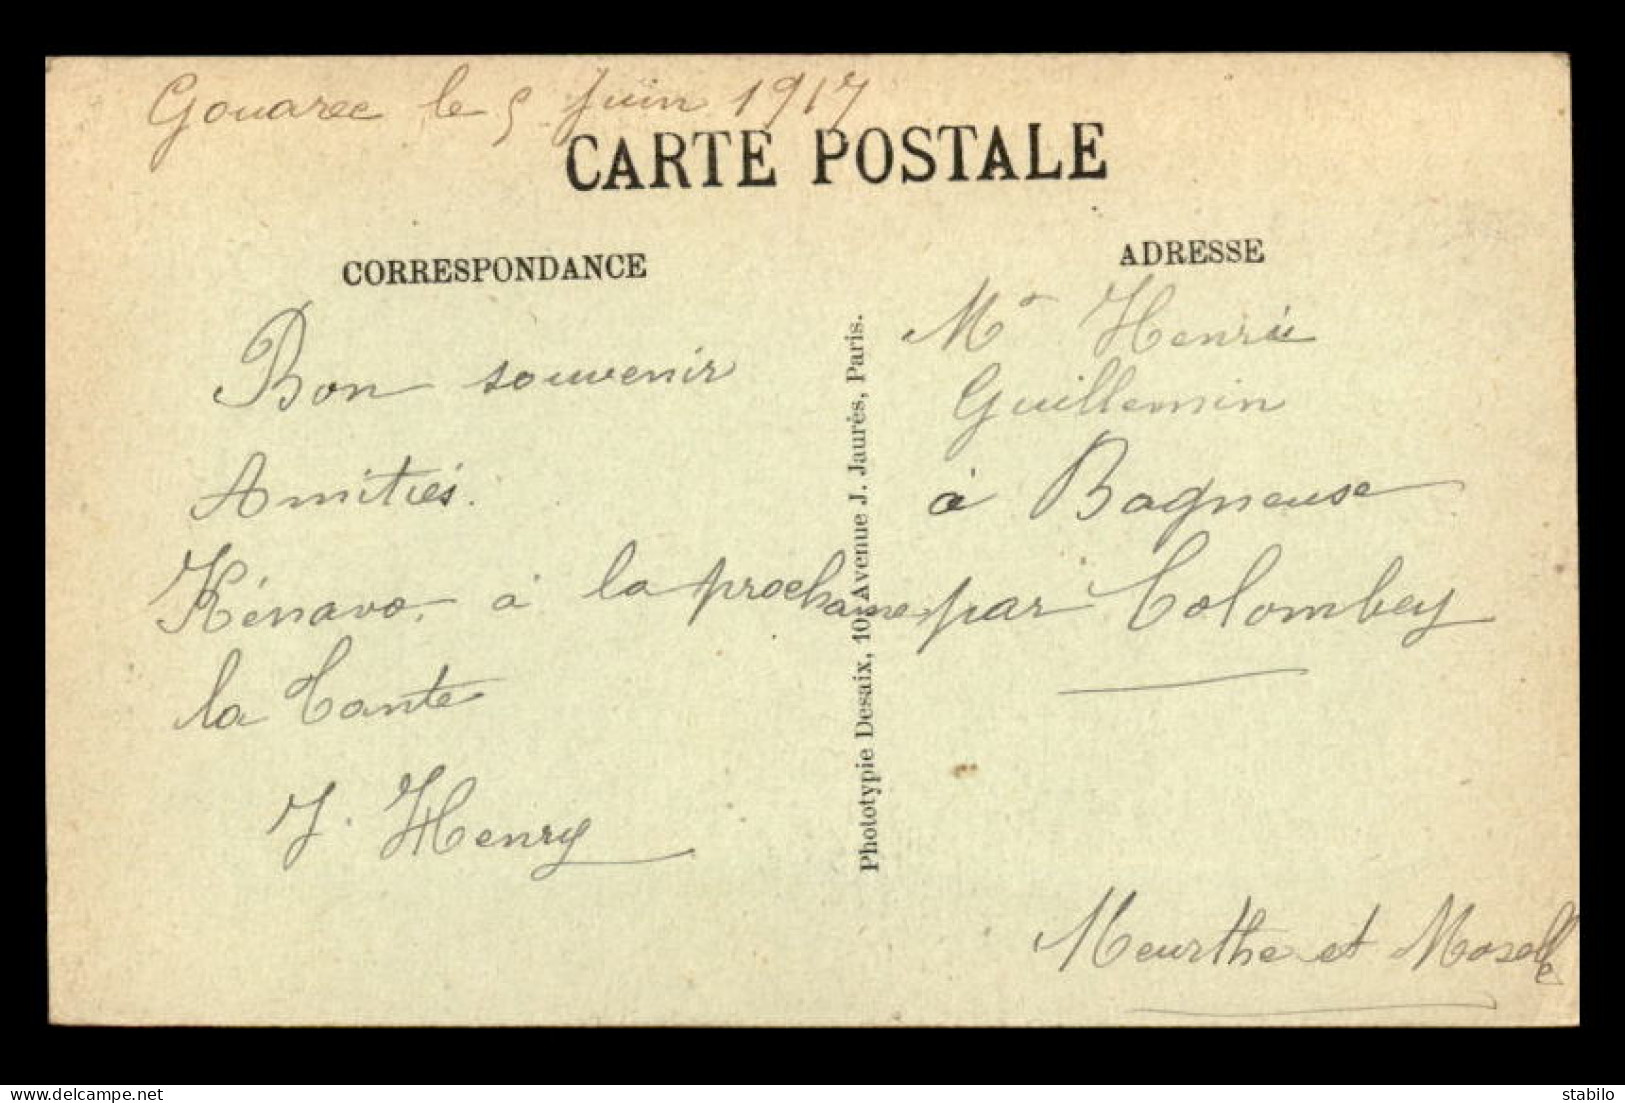 Gouarec le 5 Juin 1917
CARTE POSTALE
CORRESPONDANCE
Bon souvenir
Amitiés.
Kénavo. à la prochaine
la Tante
J. Henry
Phototypie Desaix, 10, Avenue J. Jaurès, Paris.
ADRESSE
Mr Henri
Guillemin
à Bagneuse
par Colombey
Meurthe et Moselle
stabilo